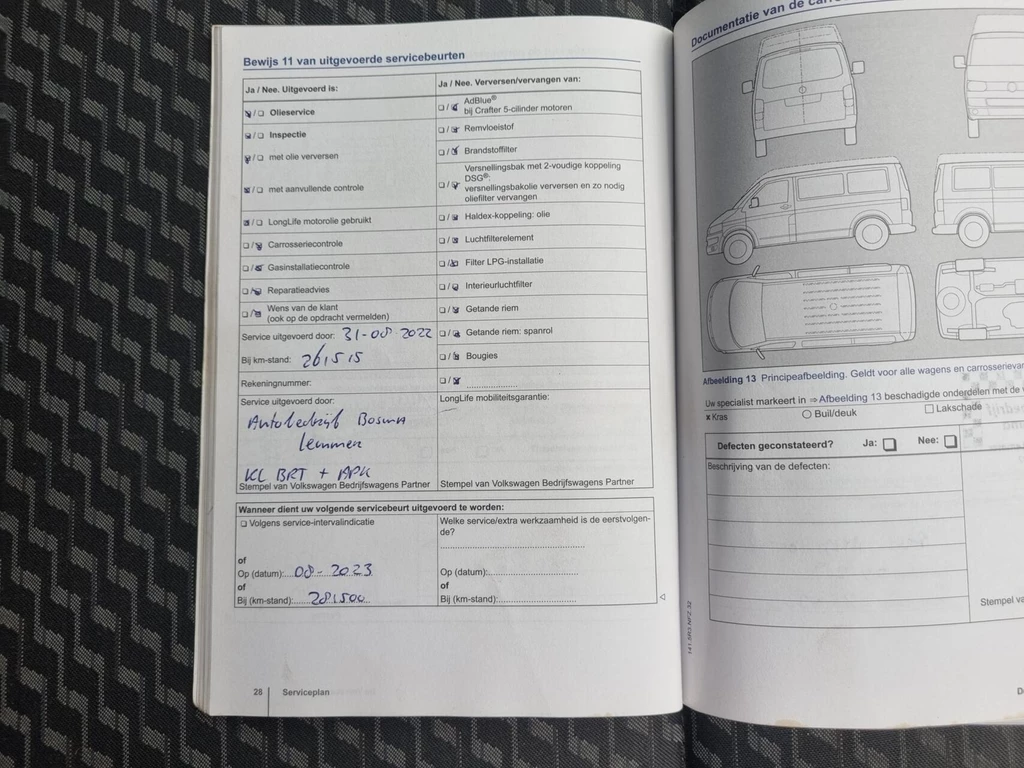 Bewijs 11 van uitgevoerde servicebeurten
Ja / Nee. Uitgevoerd is:
☒/☐ Olieservice
☒/☐ Inspectie
☒/☐ met olie verversen
☒/☐ met aanvullende controle
☒/☐ LongLife motorolie gebruikt
☐/☒ Carrosseriecontrole
☐/☒ Gasinstallatiecontrole
☐/☒ Reparatieadvies
☐/☒ Wens van de klant
(ook op de opdracht vermelden)
Service uitgevoerd door: 31-08 2022
Bij km-stand: 261515
Rekeningnummer:
Service uitgevoerd door:
Autobedrijf Bosma
Lemmer
KL BRT + APK
Stempel van Volkswagen Bedrijfswagens Partner
Ja / Nee. Verversen/vervangen van:
☐/☒ AdBlue®
bij Crafter 5-cilinder motoren
☐/☒ Remvloeistof
☐/☒ Brandstoffilter
Versnellingsbak met 2-voudige koppeling
DSG®:
☐/☒ versnellingsbakolie verversen en zo nodig
oliefilter vervangen
☐/☒ Haldex-koppeling: olie
☐/☒ Luchtfilterelement
☐/☒ Filter LPG-installatie
☐/☒ Interieurluchtfilter
☐/☒ Getande riem
☐/☒ Getande riem: spanrol
☐/☒ Bougies
☐/☒ ....................
LongLife mobiliteitsgarantie:
Stempel van Volkswagen Bedrijfswagens Partner
Wanneer dient uw volgende servicebeurt uitgevoerd te worden:
☐ Volgens service-intervalindicatie
of
Op (datum): 08-2023
of
Bij (km-stand): 281500
Welke service/extra werkzaamheid is de eerstvolgen-
de?
Op (datum):
of
Bij (km-stand):
28 Serviceplan
Documentatie van de
Afbeelding 13 Principeafbeelding. Geldt voor alle wagens en
Uw specialist markeert in ⇒ Afbeelding 13 beschadigde onderdelen met de
x Kras ○ Buil/deuk ☐ Lakschade
Defecten geconstateerd? Ja: ☐ Nee: ☐
Beschrijving van de defecten:
Stempel
141.5R3.NFZ.32